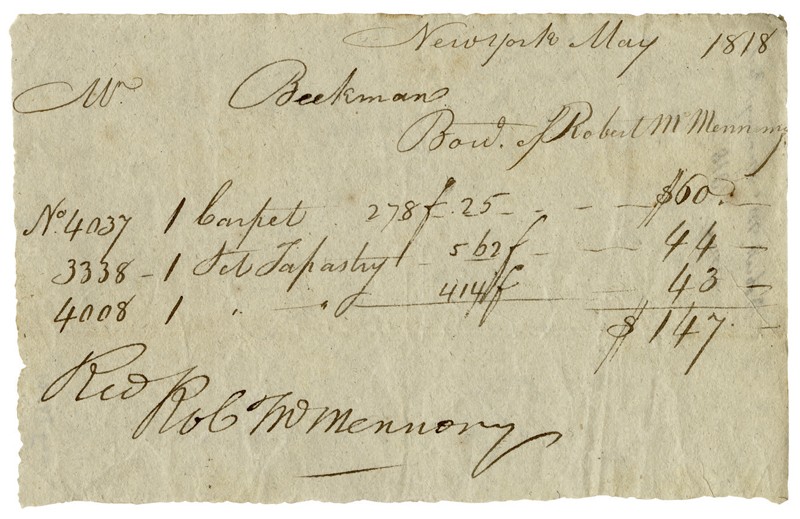 New York May 1818
Mr. Beekman
Bow. of Robert McMennomy
No. 4037 1 Carpet 278f.25 - - - $60. -
3338 - 1 Set Tapastry - 562f - - 44 -
4008 1 " " 414f 43 -
$147. -
Recd
Robt McMennomy